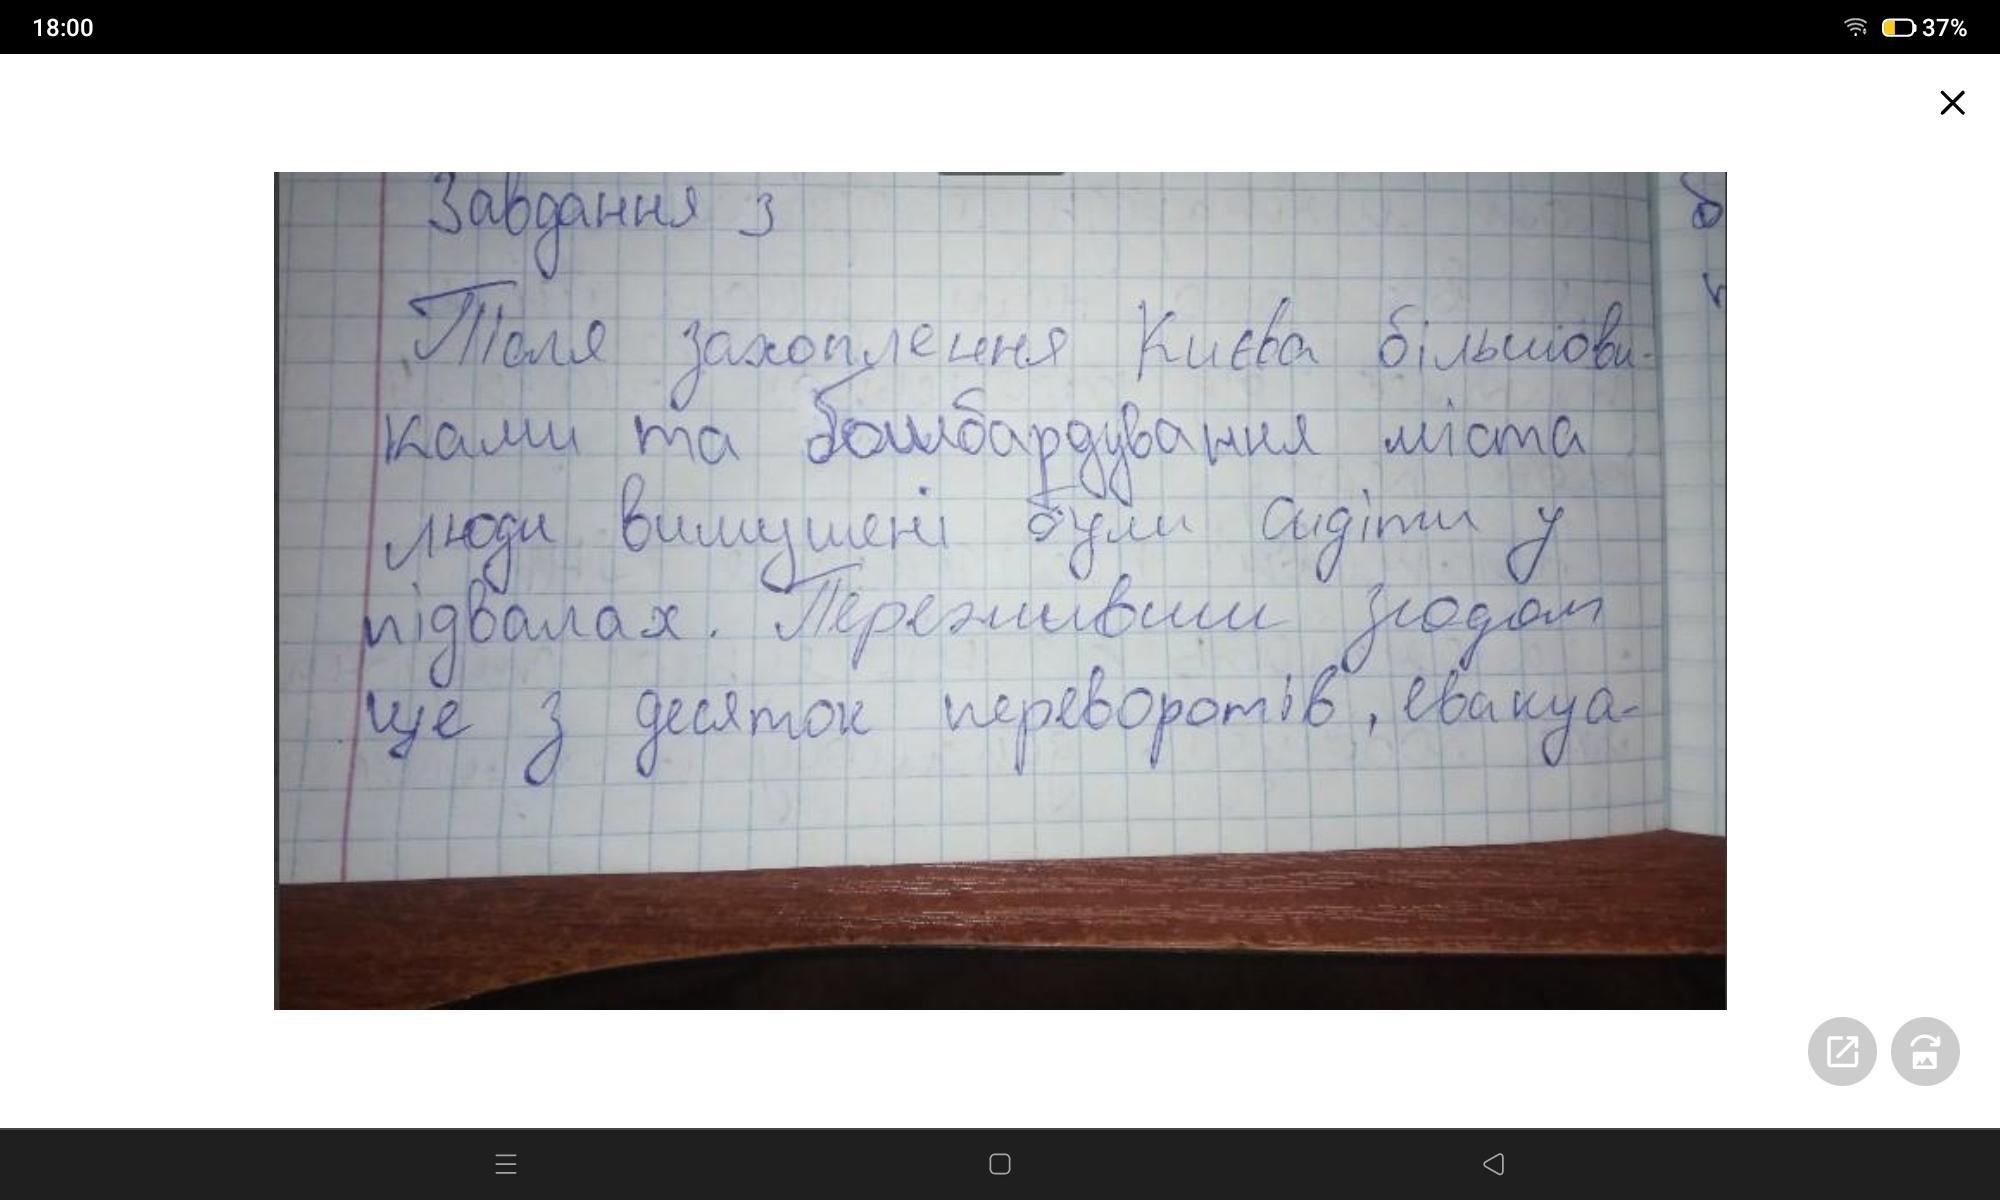 18:00
37%
Завдання 3
Після захоплення Києва більшови-
ками та бомбардування міста
люди вимушені були сидіти у
підвалах. Переживши згодом
ще з десяток переворотів, евакуа-